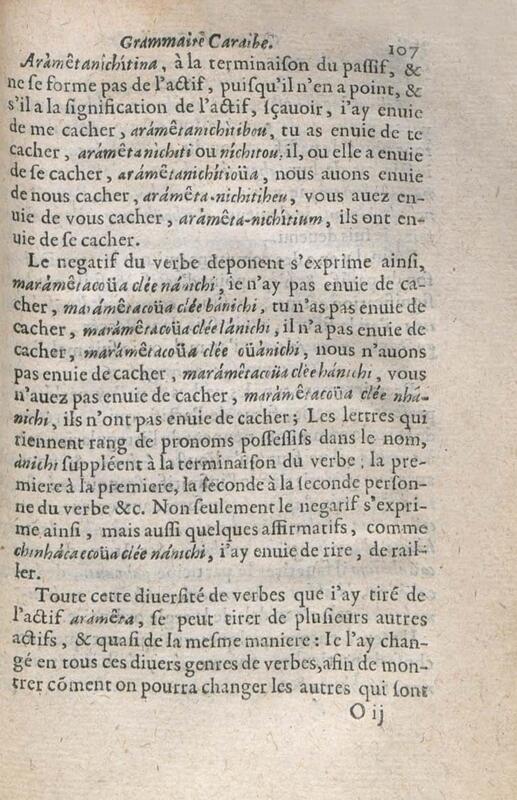 Grammaire Caraibe. 107
Aràmêtanichitina, à la terminaison du passif, &
ne se forme pas de l'actif, puisqu'il n'en a point, &
s'il a la signification de l'actif, sçauoir, i'ay enuie
de me cacher, aràmêtanichitibou, tu as enuie de te
cacher, aràmêtanichiti ou nichitou, il, ou elle a enuie
de se cacher, aràmêtanichitioüa, nous auons enuie
de nous cacher, aràmêta-nichitiheu, vous auez en-
uie de vous cacher, aràmêta-nichitium, ils ont en-
uie de se cacher.
Le negatif du verbe deponent s'exprime ainsi,
maràmêtacoüa clée nánichi, ie n'ay pas enuie de ca-
cher, maràmêtacoüa clée bànichi, tu n'as pas enuie de
cacher, maràmêtacoüa clée lànichi, il n'a pas enuie de
cacher, maràmêtacoüa clée oüànichi, nous n'auons
pas enuie de cacher, maràmêtacoüa clée hànichi, vous
n'auez pas enuie de cacher, maràmêtacoüa clée nhá-
nichi, ils n'ont pas enuie de cacher; Les lettres qui
tiennent rang de pronoms possessifs dans le nom,
ànichi suppléent à la terminaison du verbe; la pre-
miere à la premiere, la seconde à la seconde person-
ne du verbe &c. Non seulement le negatif s'expri-
me ainsi, mais aussi quelques affirmatifs, comme
chinhácaecoüa clée nánichi, i'ay enuie de rire, de rail-
ler.
Toute cette diuersité de verbes que i'ay tiré de
l'actif aràmêta, se peut tirer de plusieurs autres
actifs, & quasi de la mesme maniere: Ie l'ay chan-
gé en tous ces diuers genres de verbes, afin de mon-
trer cõment on pourra changer les autres qui sont
O ij